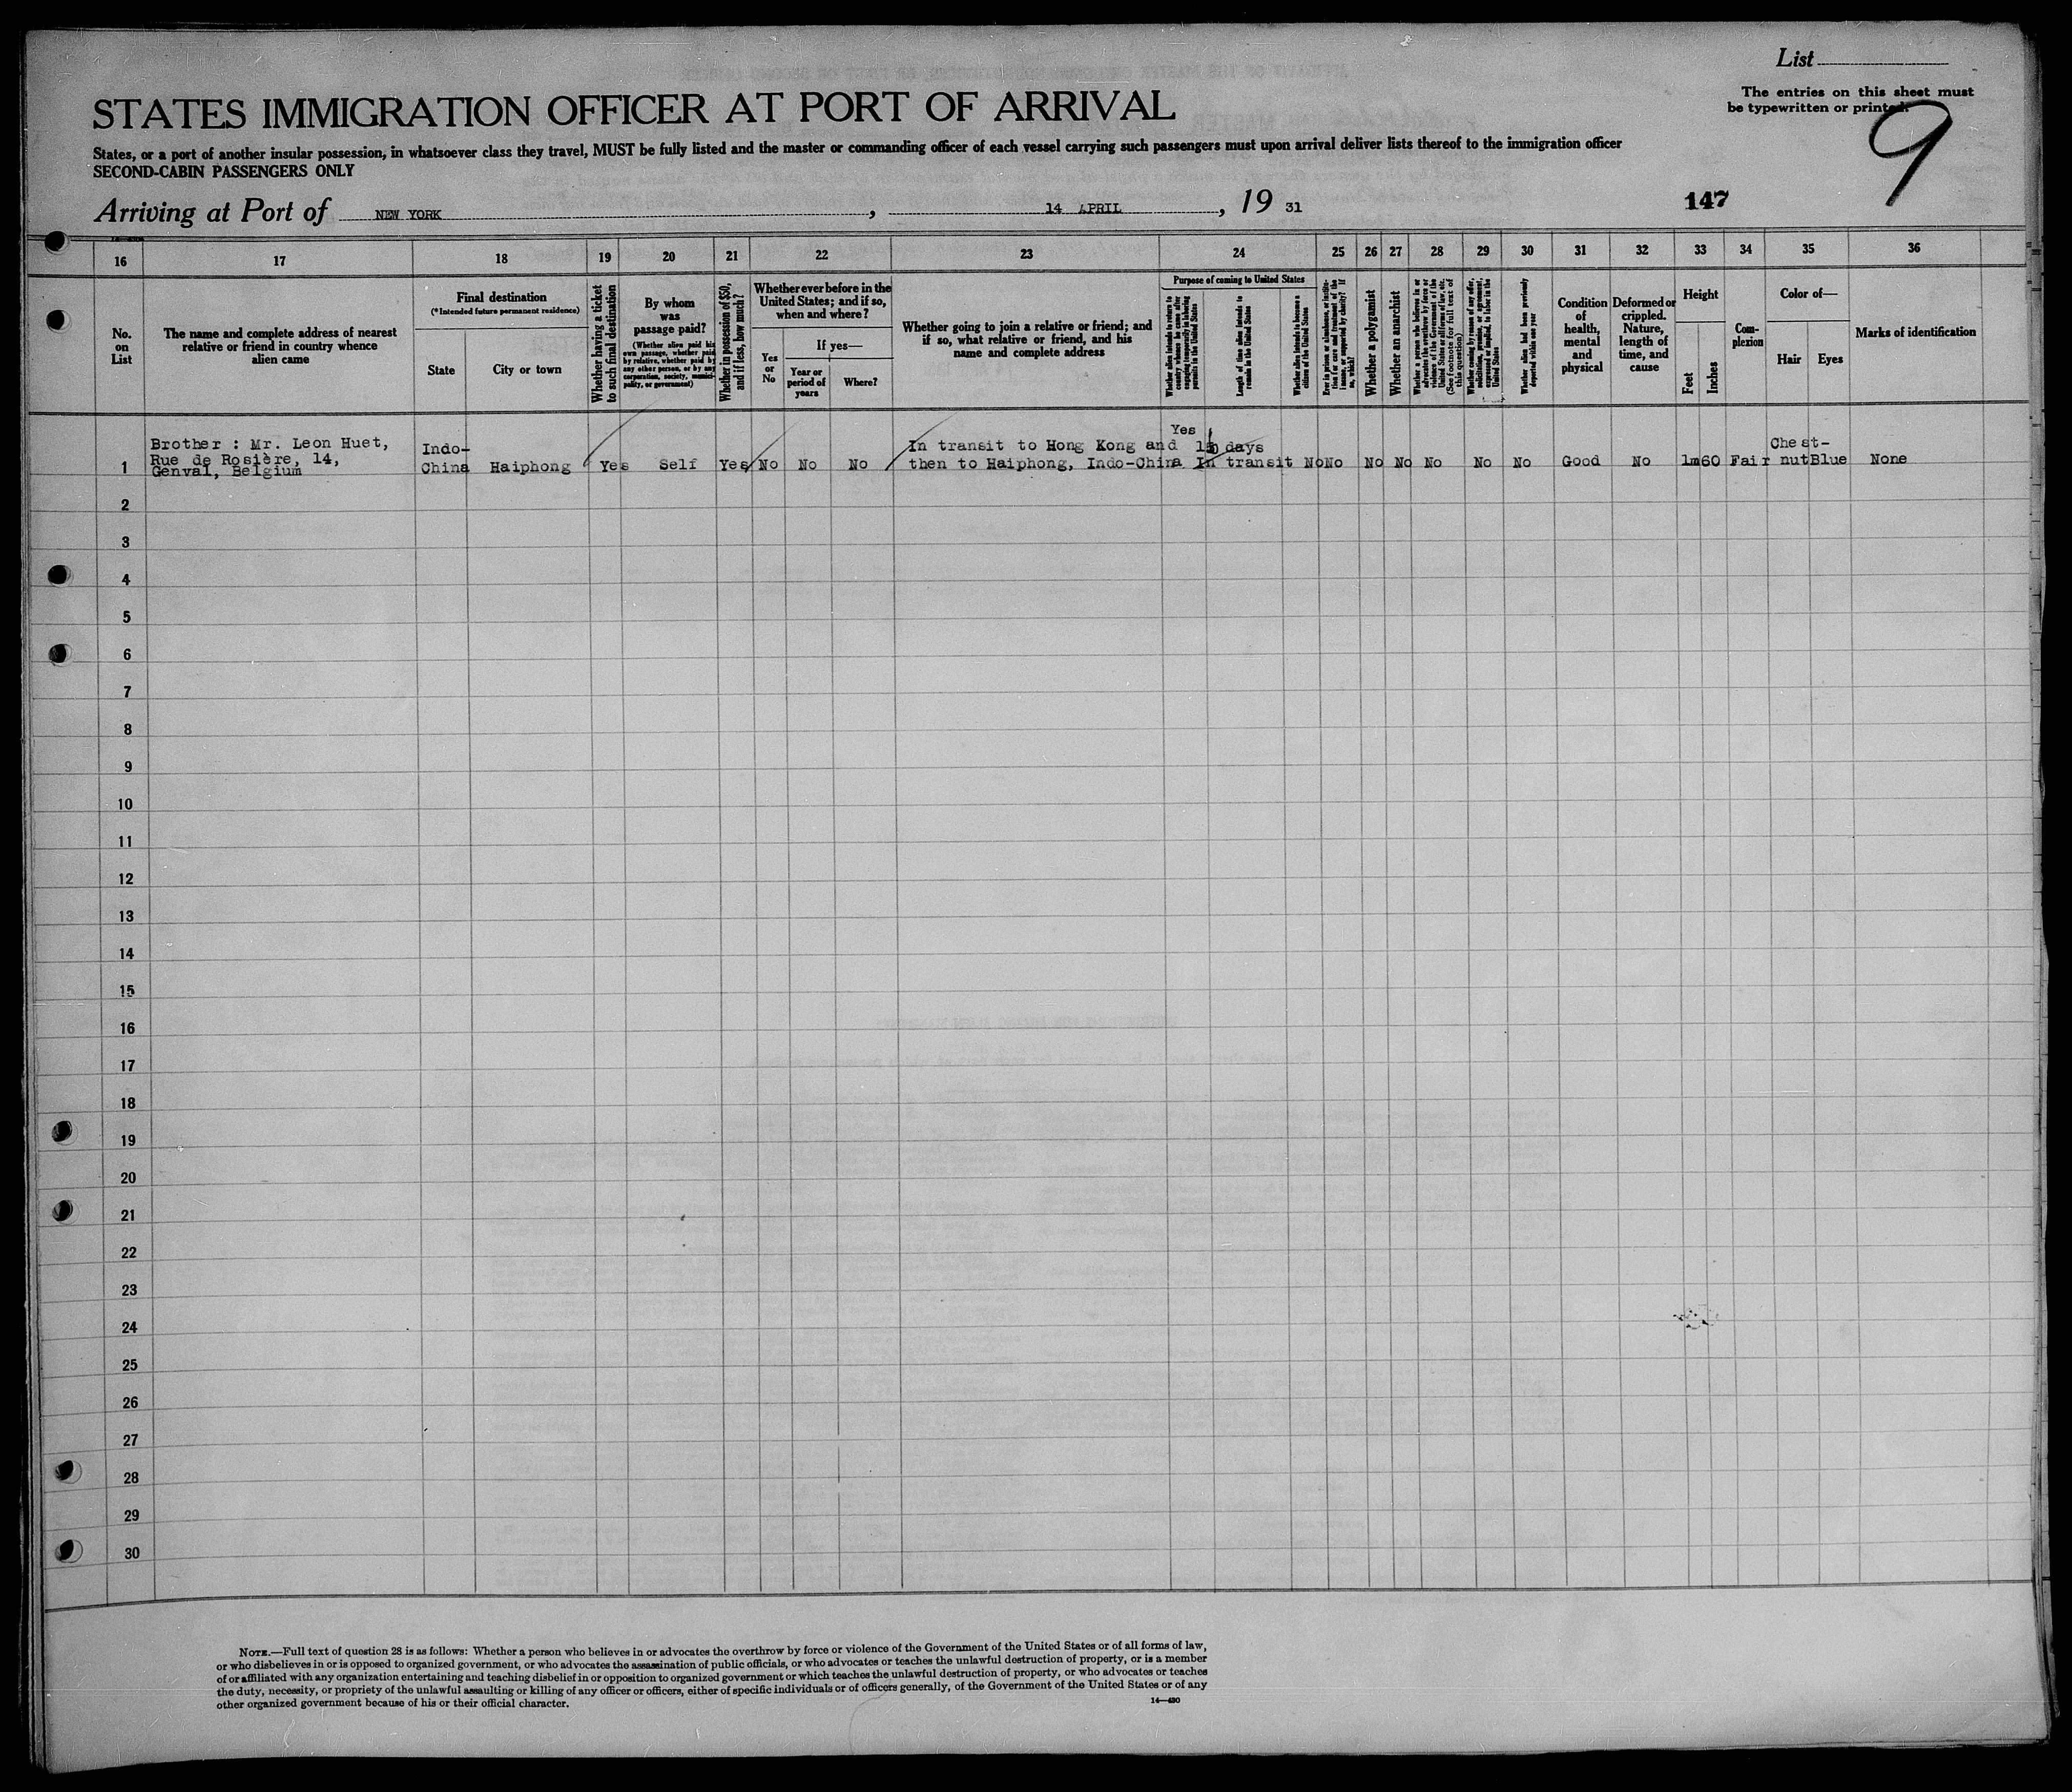 List
The entries on this sheet must
be typewritten or printed.
9
STATES IMMIGRATION OFFICER AT PORT OF ARRIVAL
States, or a port of another insular possession, in whatsoever class they travel, MUST be fully listed and the master or commanding officer of each vessel carrying such passengers must upon arrival deliver lists thereof to the immigration officer
SECOND-CABIN PASSENGERS ONLY
Arriving at Port of NEW YORK, 14 APRIL, 19 31
147
16 17 18 19 20 21 22 23 24 25 26 27 28 29 30 31 32 33 34 35 36
No.
on
List
The name and complete address of nearest
relative or friend in country whence
alien came
Final destination
(*Intended future permanent residence)
State
City or town
Whether having a ticket
to such final destination
By whom
was
passage paid?
(Whether alien paid his
own passage, whether paid
by relative, whether paid by
any other person, or by any
corporation, society, munici-
pality, or government)
Whether in possession of $50,
and if less, how much?
Whether ever before in the
United States; and if so,
when and where?
Yes
or
No
If yes—
Year or
period of
years
Where?
Whether going to join a relative or friend; and
if so, what relative or friend, and his
name and complete address
Purpose of coming to United States
Whether alien intends to return to
country whence he came after
engaging temporarily in laboring
pursuits in the United States
Length of time alien intends to
remain in the United States
Whether alien intends to become a
citizen of the United States
Ever in prison or almshouse, or institu-
tion for care and treatment of the
insane, or supported by charity? If
so, which?
Whether a polygamist
Whether an anarchist
Whether a person who believes in or
advocates the overthrow by force or
violence of the Government of the
United States or all forms of law, etc.
(See footnote for full text of
this question)
Whether coming by reason of any offer,
solicitation, promise, or agreement,
expressed or implied, to labor in the
United States
Whether alien had been previously
deported within one year
Condition
of
health,
mental
and
physical
Deformed or
crippled.
Nature,
length of
time, and
cause
Height
Feet
Inches
Com-
plexion
Color of—
Hair
Eyes
Marks of identification
Brother : Mr. Leon Huet,
Rue de Rosière, 14,
Genval, Belgium
Indo-
China
Haiphong
Yes
Self
Yes
No
No
No
In transit to Hong Kong and
then to Haiphong, Indo-China
Yes
days
In transit
No
No
No
No
No
No
No
Good
No
1m60
Fair
Chest-
nut
Blue
None
1
2
3
4
5
6
7
8
9
10
11
12
13
14
15
16
17
18
19
20
21
22
23
24
25
26
27
28
29
30
NOTE.—Full text of question 28 is as follows: Whether a person who believes in or advocates the overthrow by force or violence of the Government of the United States or of all forms of law,
or who disbelieves in or is opposed to organized government, or who advocates the assassination of public officials, or who advocates or teaches the unlawful destruction of property, or is a member
of or affiliated with any organization entertaining and teaching disbelief in or opposition to organized government or which teaches the unlawful destruction of property, or who advocates or teaches
the duty, necessity, or propriety of the unlawful assaulting or killing of any officer or officers, either of specific individuals or of officers generally, of the Government of the United States or of any
other organized government because of his or their official character.
14—430